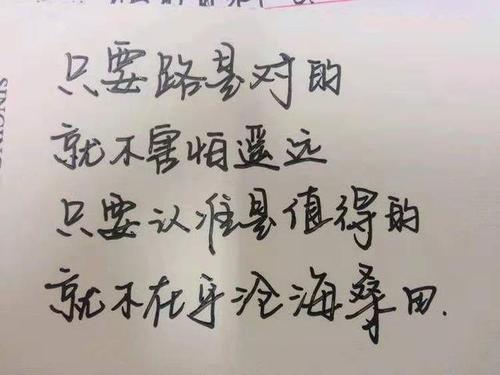 只要路是对的
就不害怕遥远
只要认准是值得的
就不在乎沧海桑田.
SINGING